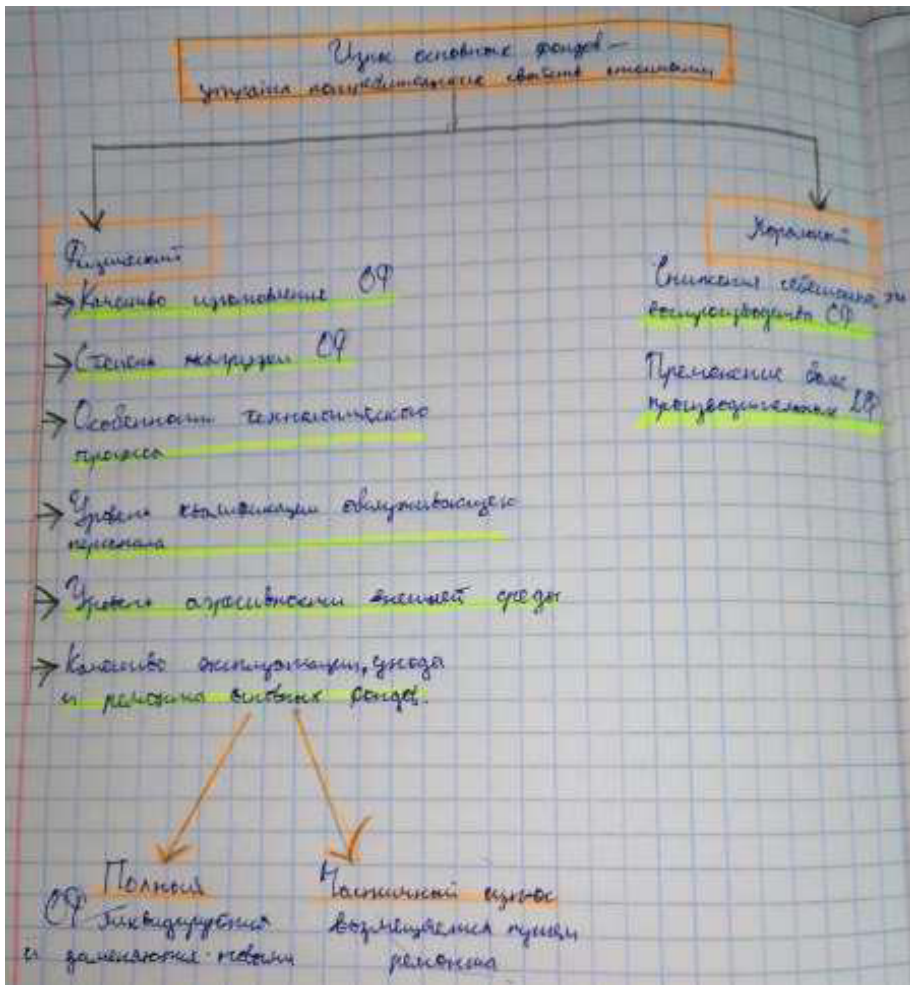 Износ основных фондов –
утрата потребительских свойств стоимости
Физический
Моральный
Качество изготовления ОФ
Степень нагрузки ОФ
Особенности технологического
процесса
Уровень квалификации обслуживающего
персонала
Уровень агрессивности внешней среды
Качество эксплуатации, ухода
и ремонта основных фондов.
Снижения
воспроизводства ОФ
Применение более
производительных ОФ
Полный
ОФ ликвидируются
и заменяются новыми
Частичный износ
возмещается путем
ремонта